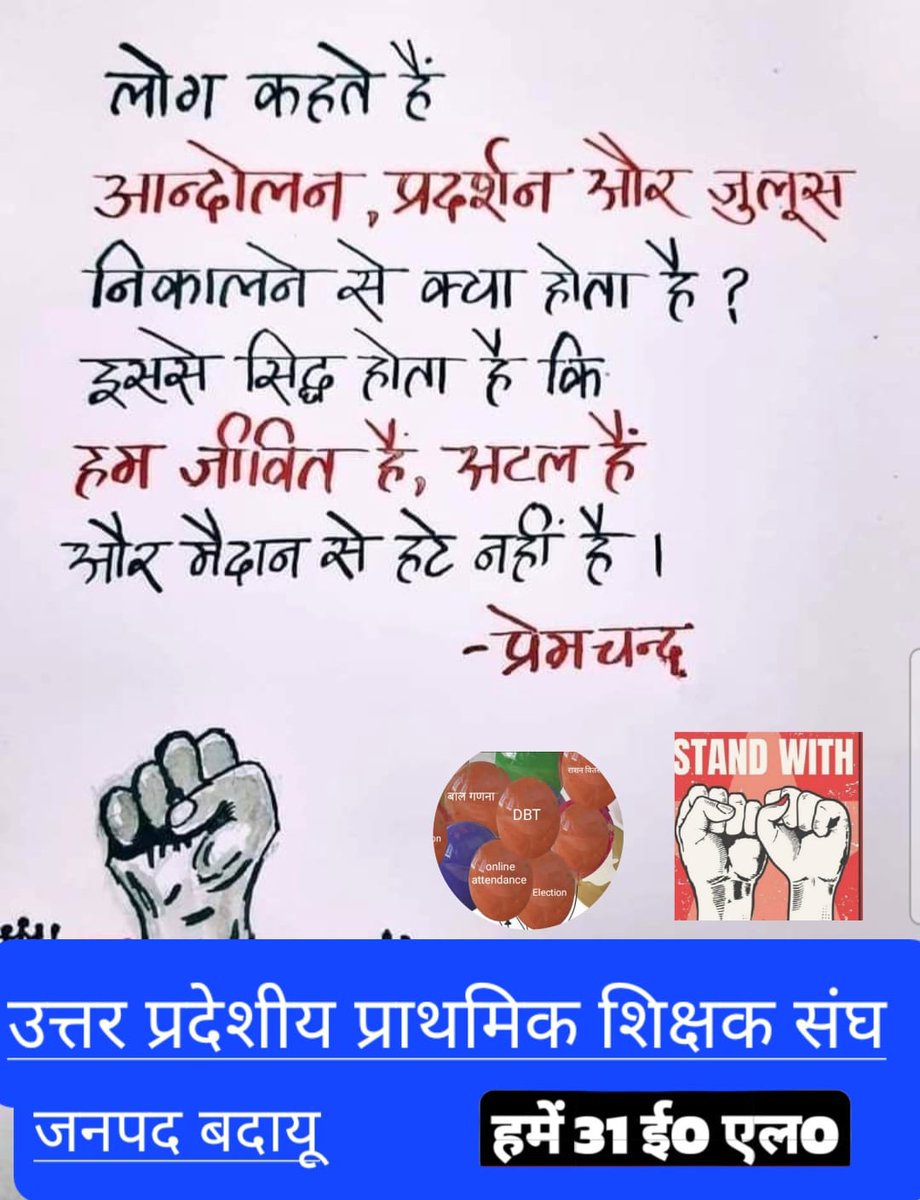 लोग कहते हैं
आन्दोलन, प्रदर्शन और जुलूस
निकालने से क्या होता है ?
इससे सिद्ध होता है कि
हम जीवित हैं, अटल हैं
और मैदान से हटे नहीं है ।
-प्रेमचन्द
STAND WITH
राशन वित
बाल गणना
DBT
on
online
attendance
Election
उत्तर प्रदेशीय प्राथमिक शिक्षक संघ
जनपद बदायू
हमें 31 ई0 एल0